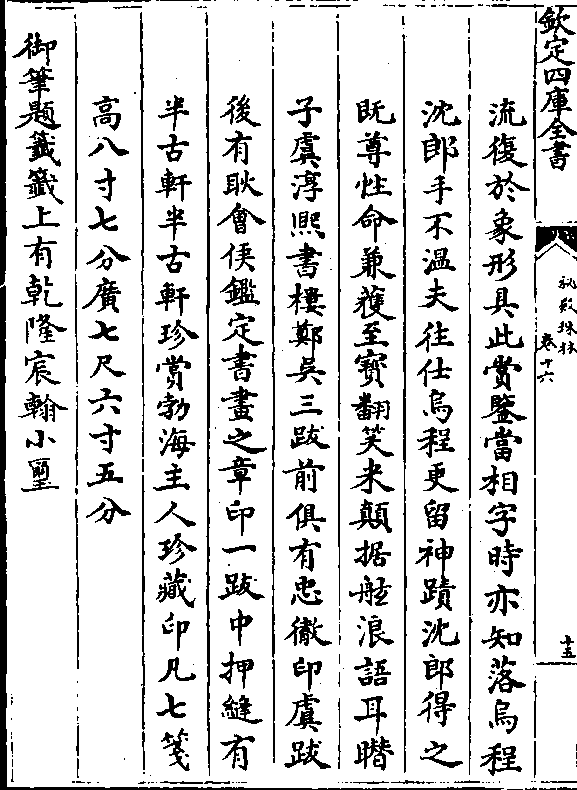 欽定四庫全書
秘殿珠林
卷十六
十五
流復於象形具此賞鑒當相字時亦知落烏程
沈郎手不溫夫往仕烏程更留神蹟沈郎得之
既尊性命兼獲至寶翻笑米顛据舷浪語耳暗
子虞淳熙書樓鄭吳三跋前俱有忠徹印虞跋
後有耿會侯鑑定書畫之章印一跋中押縫有
半古軒半古軒珍賞勃海主人珍藏印凡七箋
高八寸七分廣七尺六寸五分
御筆題籤籤上有乾隆宸翰小璽